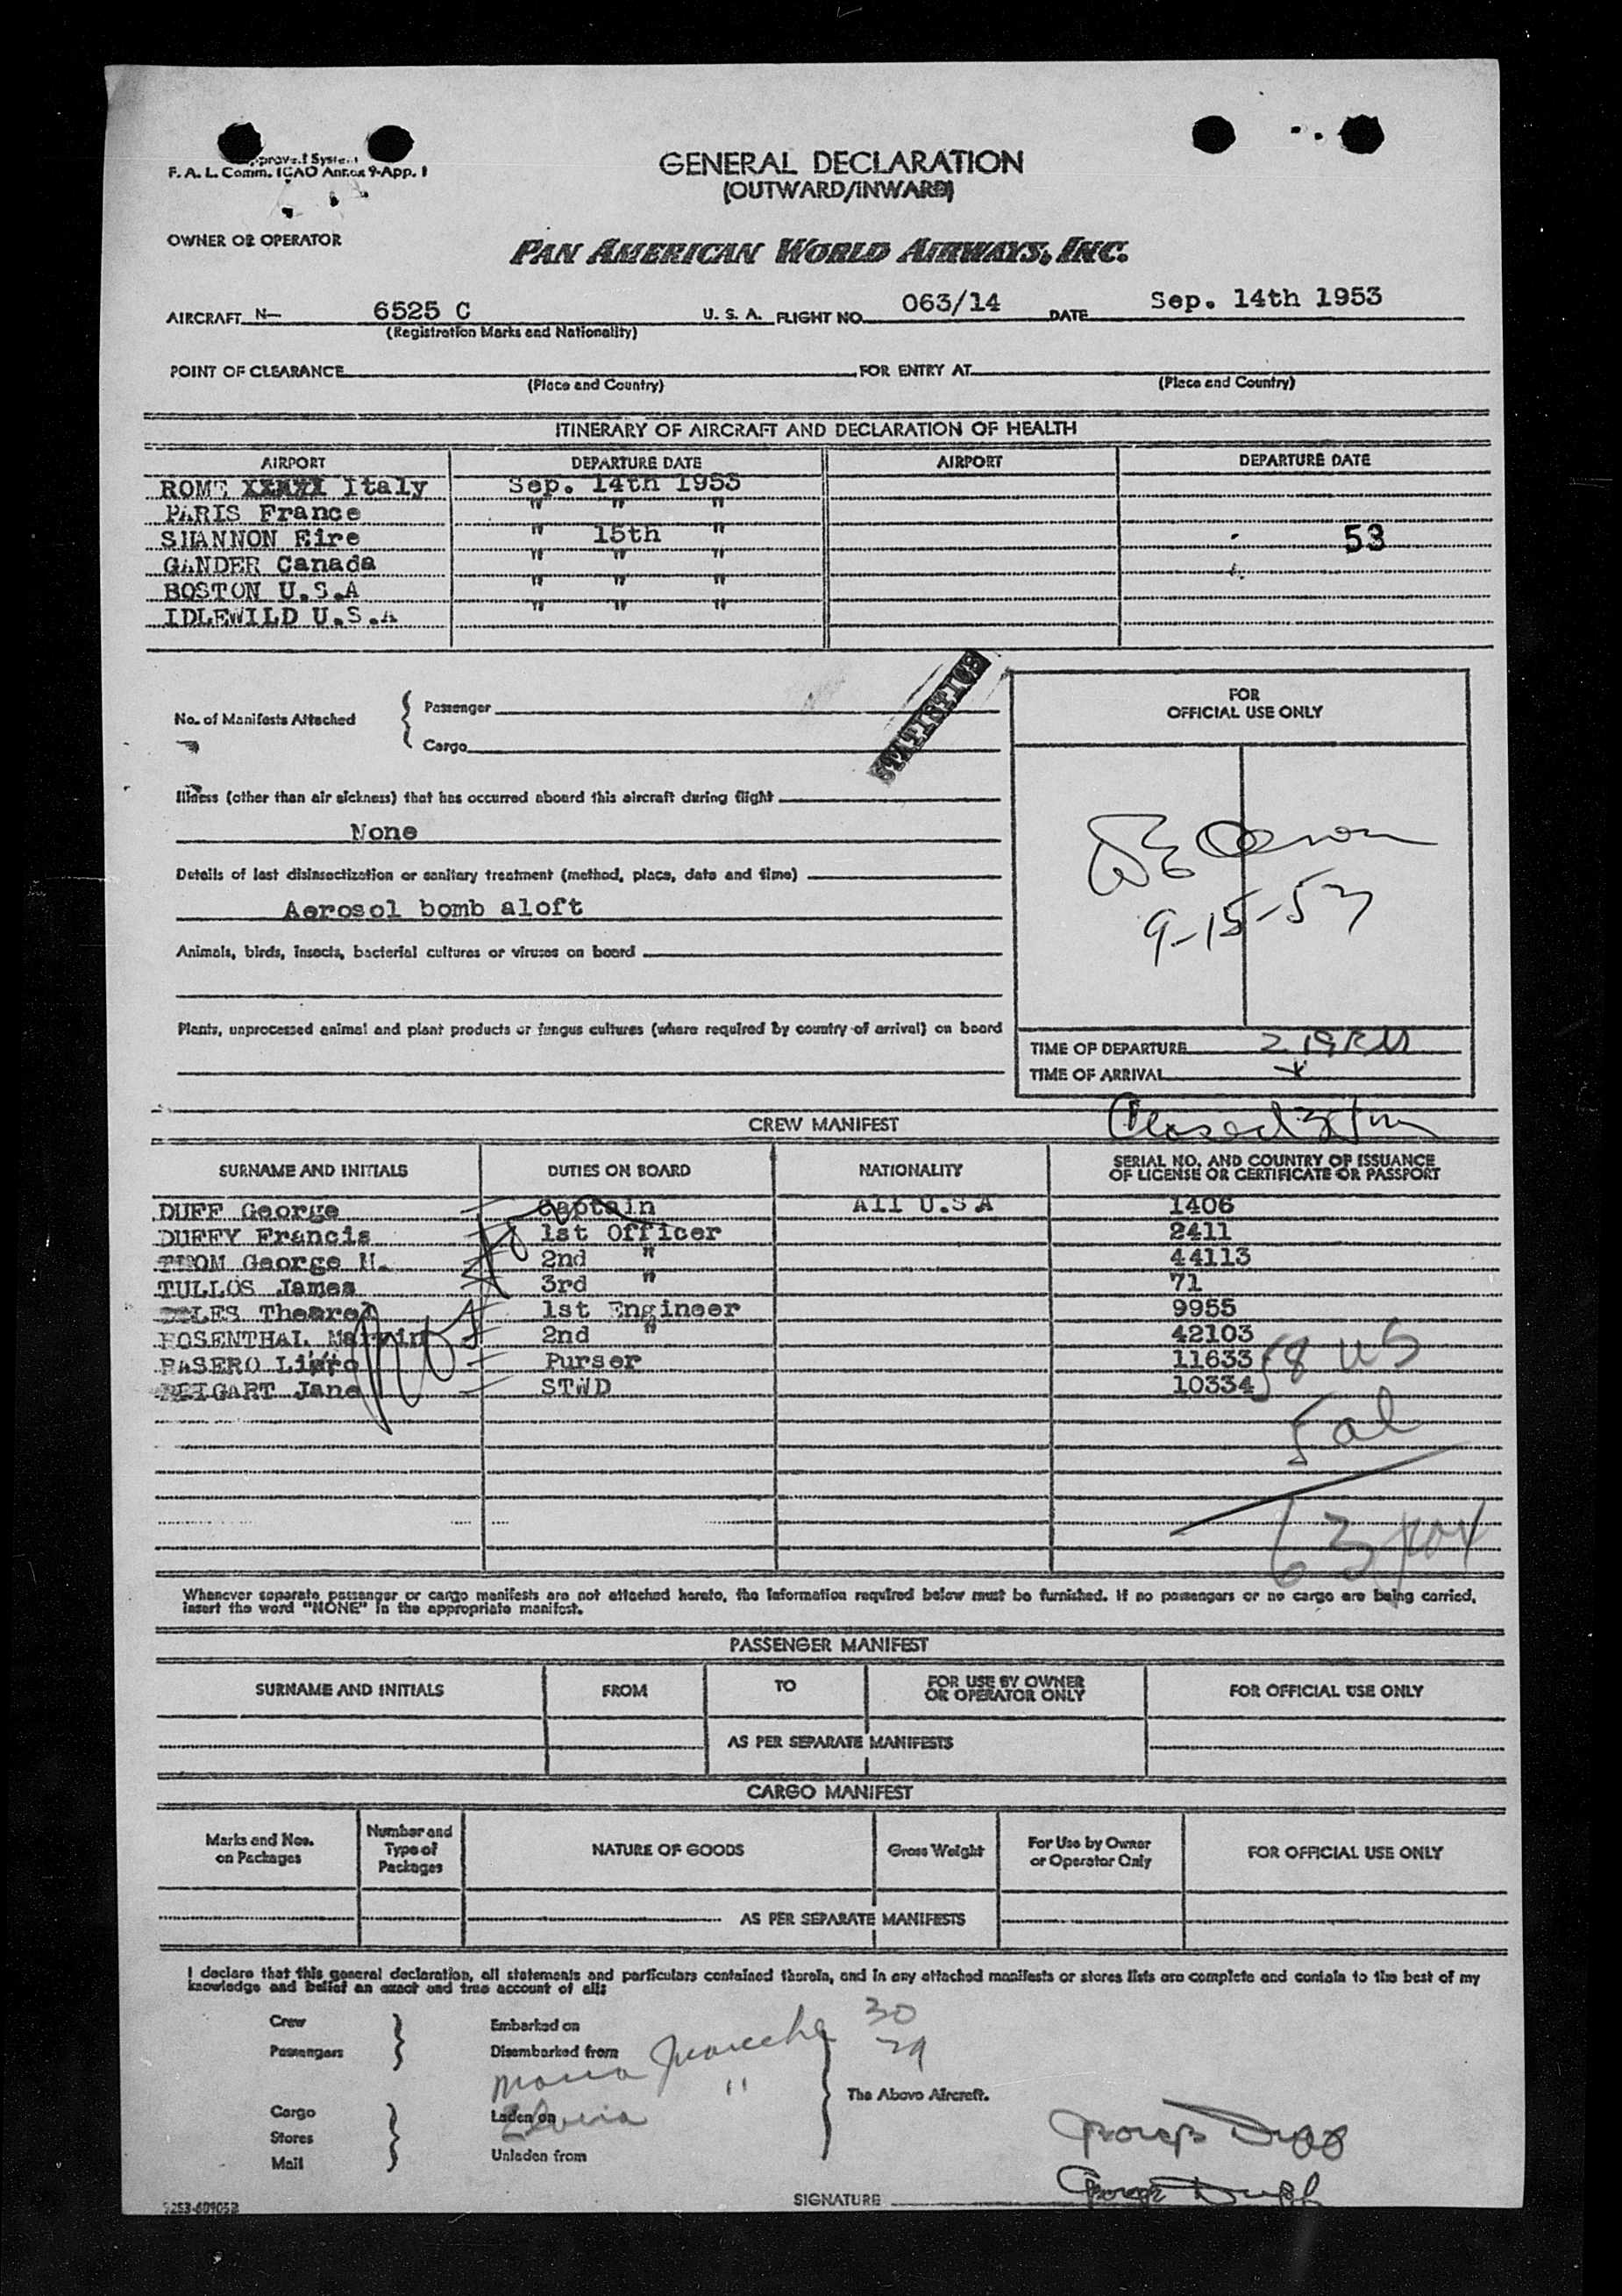 F. A. L. Comm. ICAO Annex 9-App. 1
GENERAL DECLARATION
(OUTWARD/INWARD)
OWNER OR OPERATOR
PAN AMERICAN WORLD AIRWAYS, INC.
AIRCRAFT N- 6525 C U. S. A. FLIGHT NO. 063/14 DATE Sep. 14th 1953
(Registration Marks and Nationality)
POINT OF CLEARANCE FOR ENTRY AT
(Place and Country) (Place and Country)
ITINERARY OF AIRCRAFT AND DECLARATION OF HEALTH
AIRPORT DEPARTURE DATE AIRPORT DEPARTURE DATE
ROME Italy Sep. 14th 1953
PARIS France " " "
SHANNON Eire " 15th " 53
GANDER Canada " " "
BOSTON U.S.A " " "
IDLEWILD U.S.A " " "
STATISTICS
FOR
OFFICIAL USE ONLY
No. of Manifests Attached
Passenger
Cargo
Illness (other than air sickness) that has occurred aboard this aircraft during flight
None
Details of last disinsectization or sanitary treatment (method, place, date and time)
Aerosol bomb aloft
9-15-53
Animals, birds, insects, bacterial cultures or viruses on board
Plants, unprocessed animal and plant products or fungus cultures (where required by country of arrival) on board
TIME OF DEPARTURE
TIME OF ARRIVAL
Closed
CREW MANIFEST
SURNAME AND INITIALS DUTIES ON BOARD NATIONALITY SERIAL NO. AND COUNTRY OF ISSUANCE
OF LICENSE OR CERTIFICATE OR PASSPORT
DUFF George Captain All U.S.A 1406
DUFFY Francis 1st Officer 2411
THOM George 2nd " 44113
TULLOS James 3rd " 71
1st Engineer 9955
ROSENTHAL Marvin 2nd " 42103
BASERO Purser 11633
Jane STWD 10334
58 US
5 al
63
Whenever separate passenger or cargo manifests are not attached hereto, the information required below must be furnished. If no passengers or no cargo are being carried,
insert the word "NONE" in the appropriate manifest.
PASSENGER MANIFEST
SURNAME AND INITIALS FROM TO FOR USE BY OWNER
OR OPERATOR ONLY FOR OFFICIAL USE ONLY
AS PER SEPARATE MANIFESTS
CARGO MANIFEST
Marks and Nos.
on Packages
Number and
Type of
Packages
NATURE OF GOODS Gross Weight
For Use by Owner
or Operator Only
FOR OFFICIAL USE ONLY
AS PER SEPARATE MANIFESTS
I declare that this general declaration, all statements and particulars contained therein, and in any attached manifests or stores lists are complete and contain to the best of my
knowledge and belief an exact and true account of all:
Crew Embarked on 30
Passengers Disembarked from 29
Maria "
The Above Aircraft.
Cargo Laden on
Elvira
Stores
Mail Unladen from
George Duff
SIGNATURE George Duff